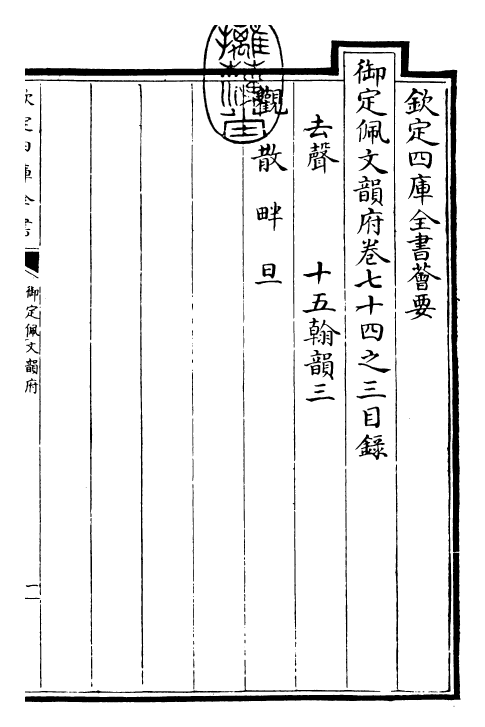 欽定四庫全書薈要
御定佩文韻府卷七十四之三目錄
去聲 十五翰韻三
觀 散 畔 旦
欽定四庫全書
御定佩文韻府
一